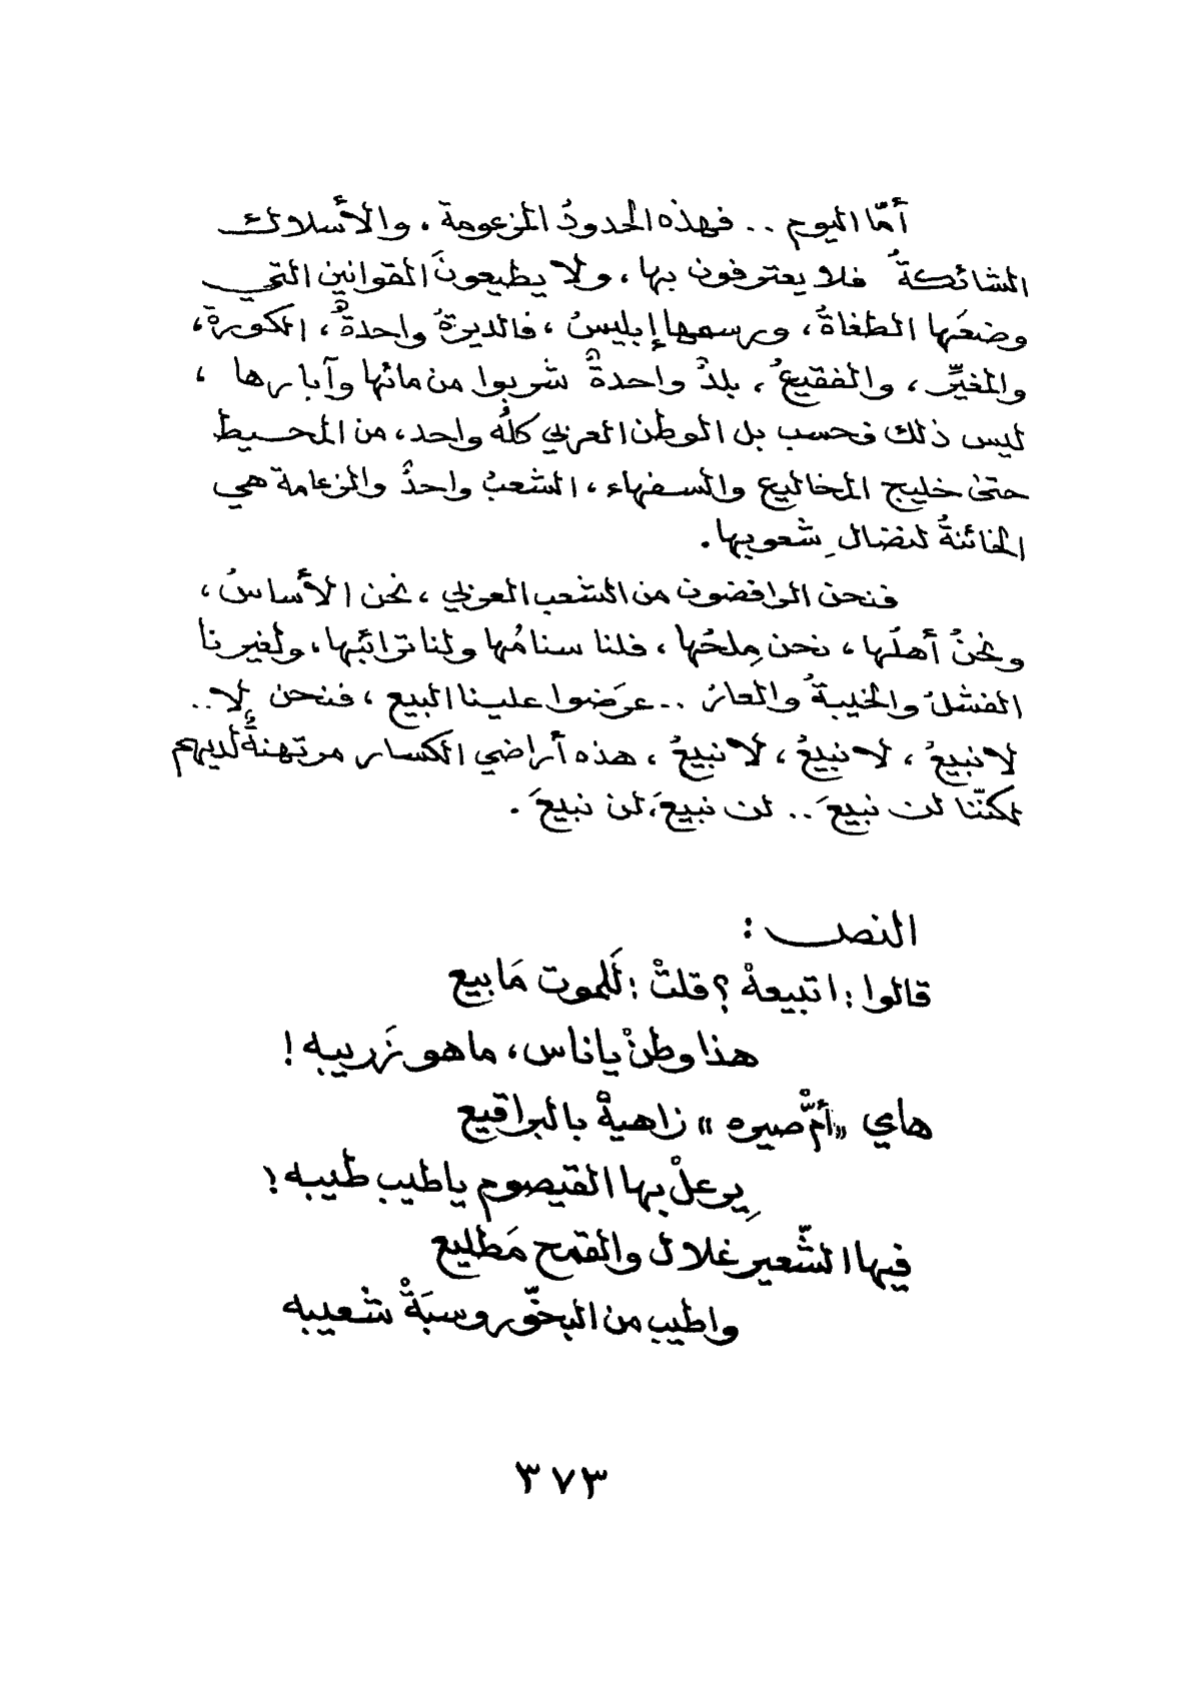 أمّا اليوم .. فهذه الحدودُ المزعومة ، والأسلاك
الشائكةُ فلا يعترفون بها ، ولا يطيعونَ القوانين التي
وضعَها الطغاةُ ، ورسمها إبليسُ ، فالديرةُ واحدةٌ ، الكورةُ ،
والمغيِّر ، والفقيعُ ، بلدٌ واحدةٌ شربوا من مائها وآبارها ،
ليس ذلك فحسب بل الوطن العربي كلُّه واحد ، من المحيط
حتىٰ خليج المخاليع والسفهاء ، الشعبُ واحدٌ والزعامة هي
الخائنةُ لنضالِ شعوبها .
فنحن الرافضون من الشعب العربي ، نحن الأساسُ ،
ونحنُ أهلُها ، نحن مِلحُها ، فلنا سنامُها ولنا ترائبُها ، ولغيرنا
الفشلُ والخيبةُ والعارُ .. عرَضوا علينا البيع ، فنحن لا ..
لا نبيعُ ، لا نبيعُ ، لا نبيعُ ، هذه أراضي الكسار مرتهنةٌ لديهم
لكنّنا لن نبيعَ .. لن نبيعَ ، لن نبيعَ .
النص :
قالوا : اتبيعهْ ؟ قلتْ : لَلموت مَا بيع
هذا وطنْ ياناس ، ماهو زَريبه !
هاي «أمّْ صيره» زاهيةْ بالبراقيع
يِرعلْ بها القيصوم ياطيب طيبه !
فيها الشّعير غلال والقمح مَطليع
واطيب من البخّور وسبَةْ شعيبه
٣٧٣